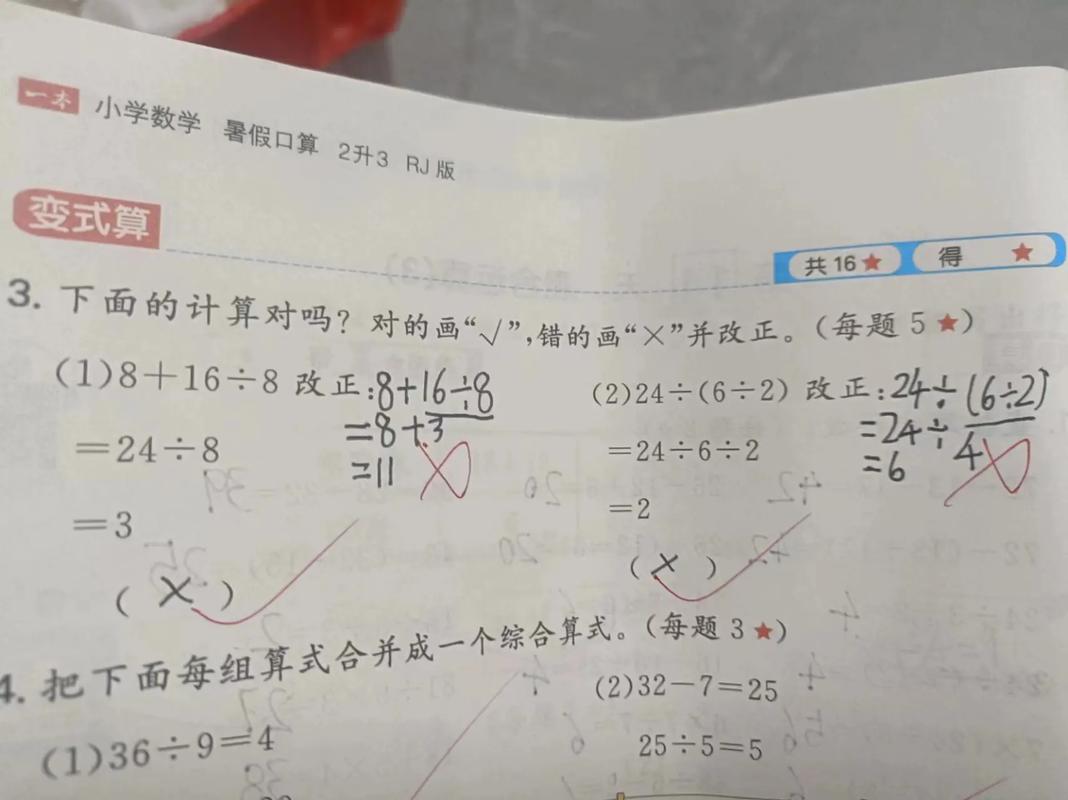 一本 小学数学 暑假口算 2升3 RJ版
变式算
共16★ 得 ★
3. 下面的计算对吗？对的画“√”，错的画“×”并改正。（每题5★）
(1)8＋16÷8 改正:8+16÷8
=24÷8 =8+3
=3 =11
( × )
(2)24÷(6÷2) 改正:24÷(6÷2)
=24÷6÷2 =24÷4
=2 =6
( × )
4. 把下面每组算式合并成一个综合算式。（每题3★）
(1)36÷9=4
(2)32－7=25
25÷5=5